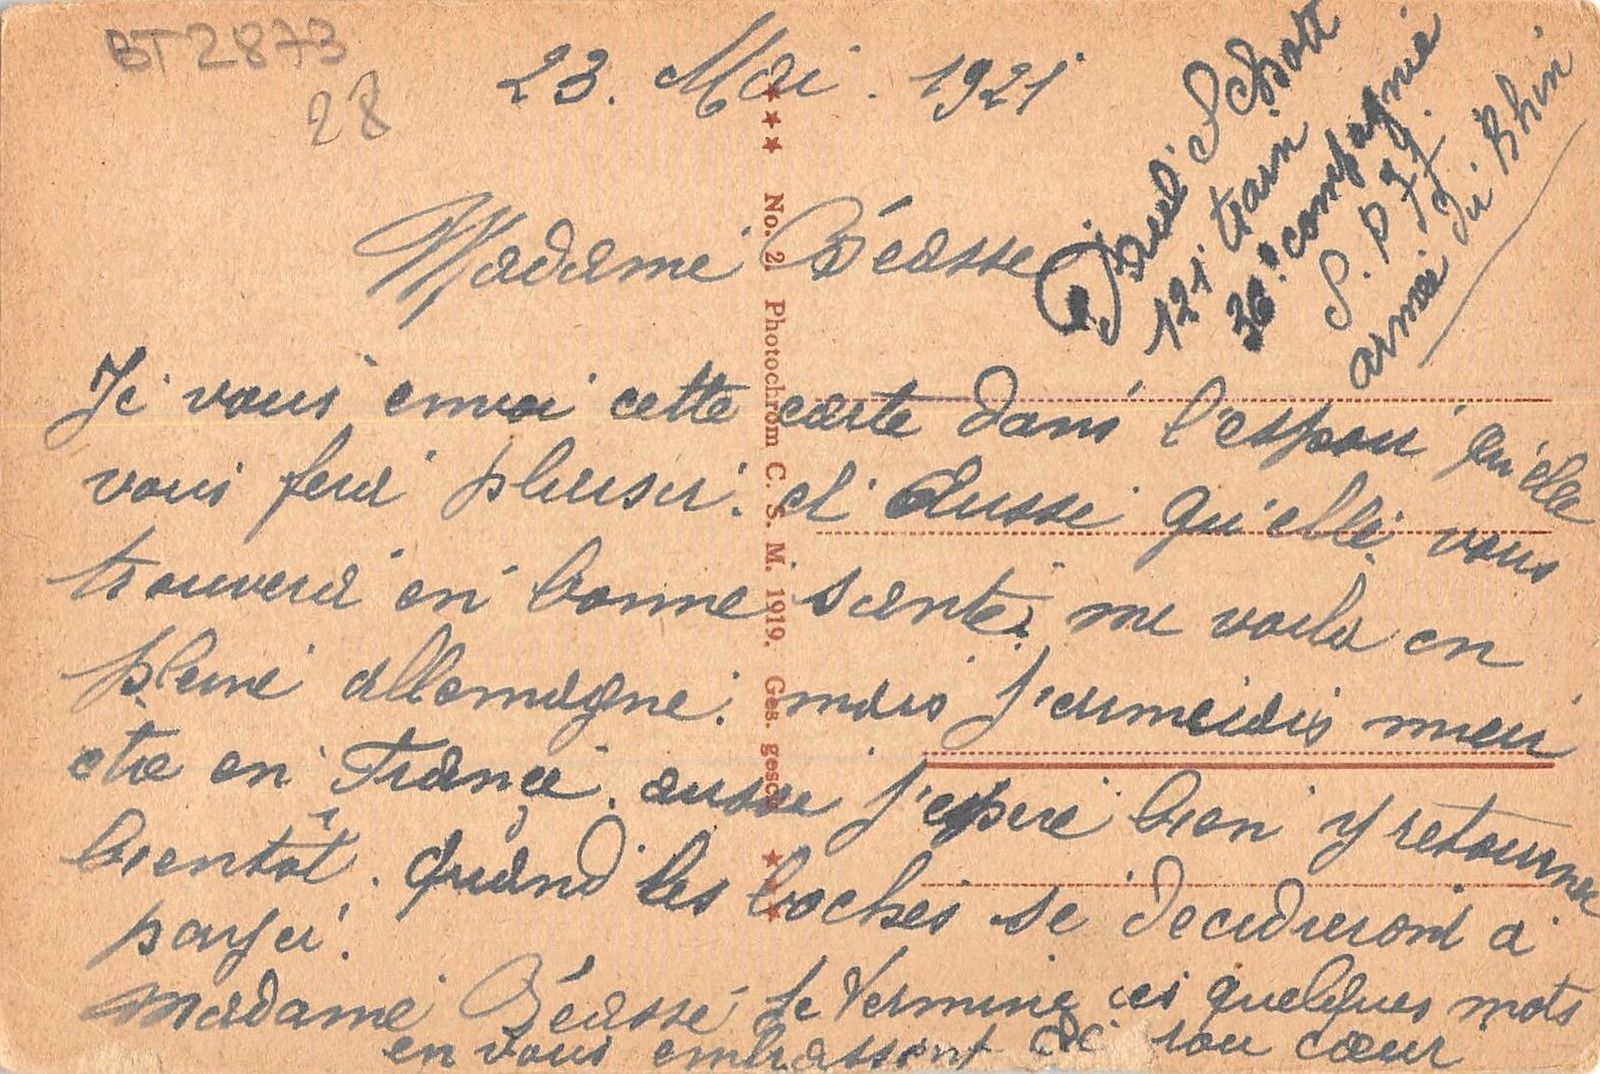 BT2873
28
23. Mai. 1921
Paul Schott
121 train
36e compagnie
S. P. 77.
armée du Rhin
Madame Béasse
Je vous envoi cette carte dans l'espoir qu'elle
vous fera plaisir. et aussi qu'elle vous
trouvera en bonne santé. me voila en
pleine allemagne. mais j'aimerais mieu
etre en France. aussi j'espere bien y retourner
bientôt. quand les boches se decideront à
payer.
Madame Béasse je termine ces quelques mots
en vous embrassant de tou cœur
No. 2. Photochrom C. S. M. 1919. Ges. gesch.